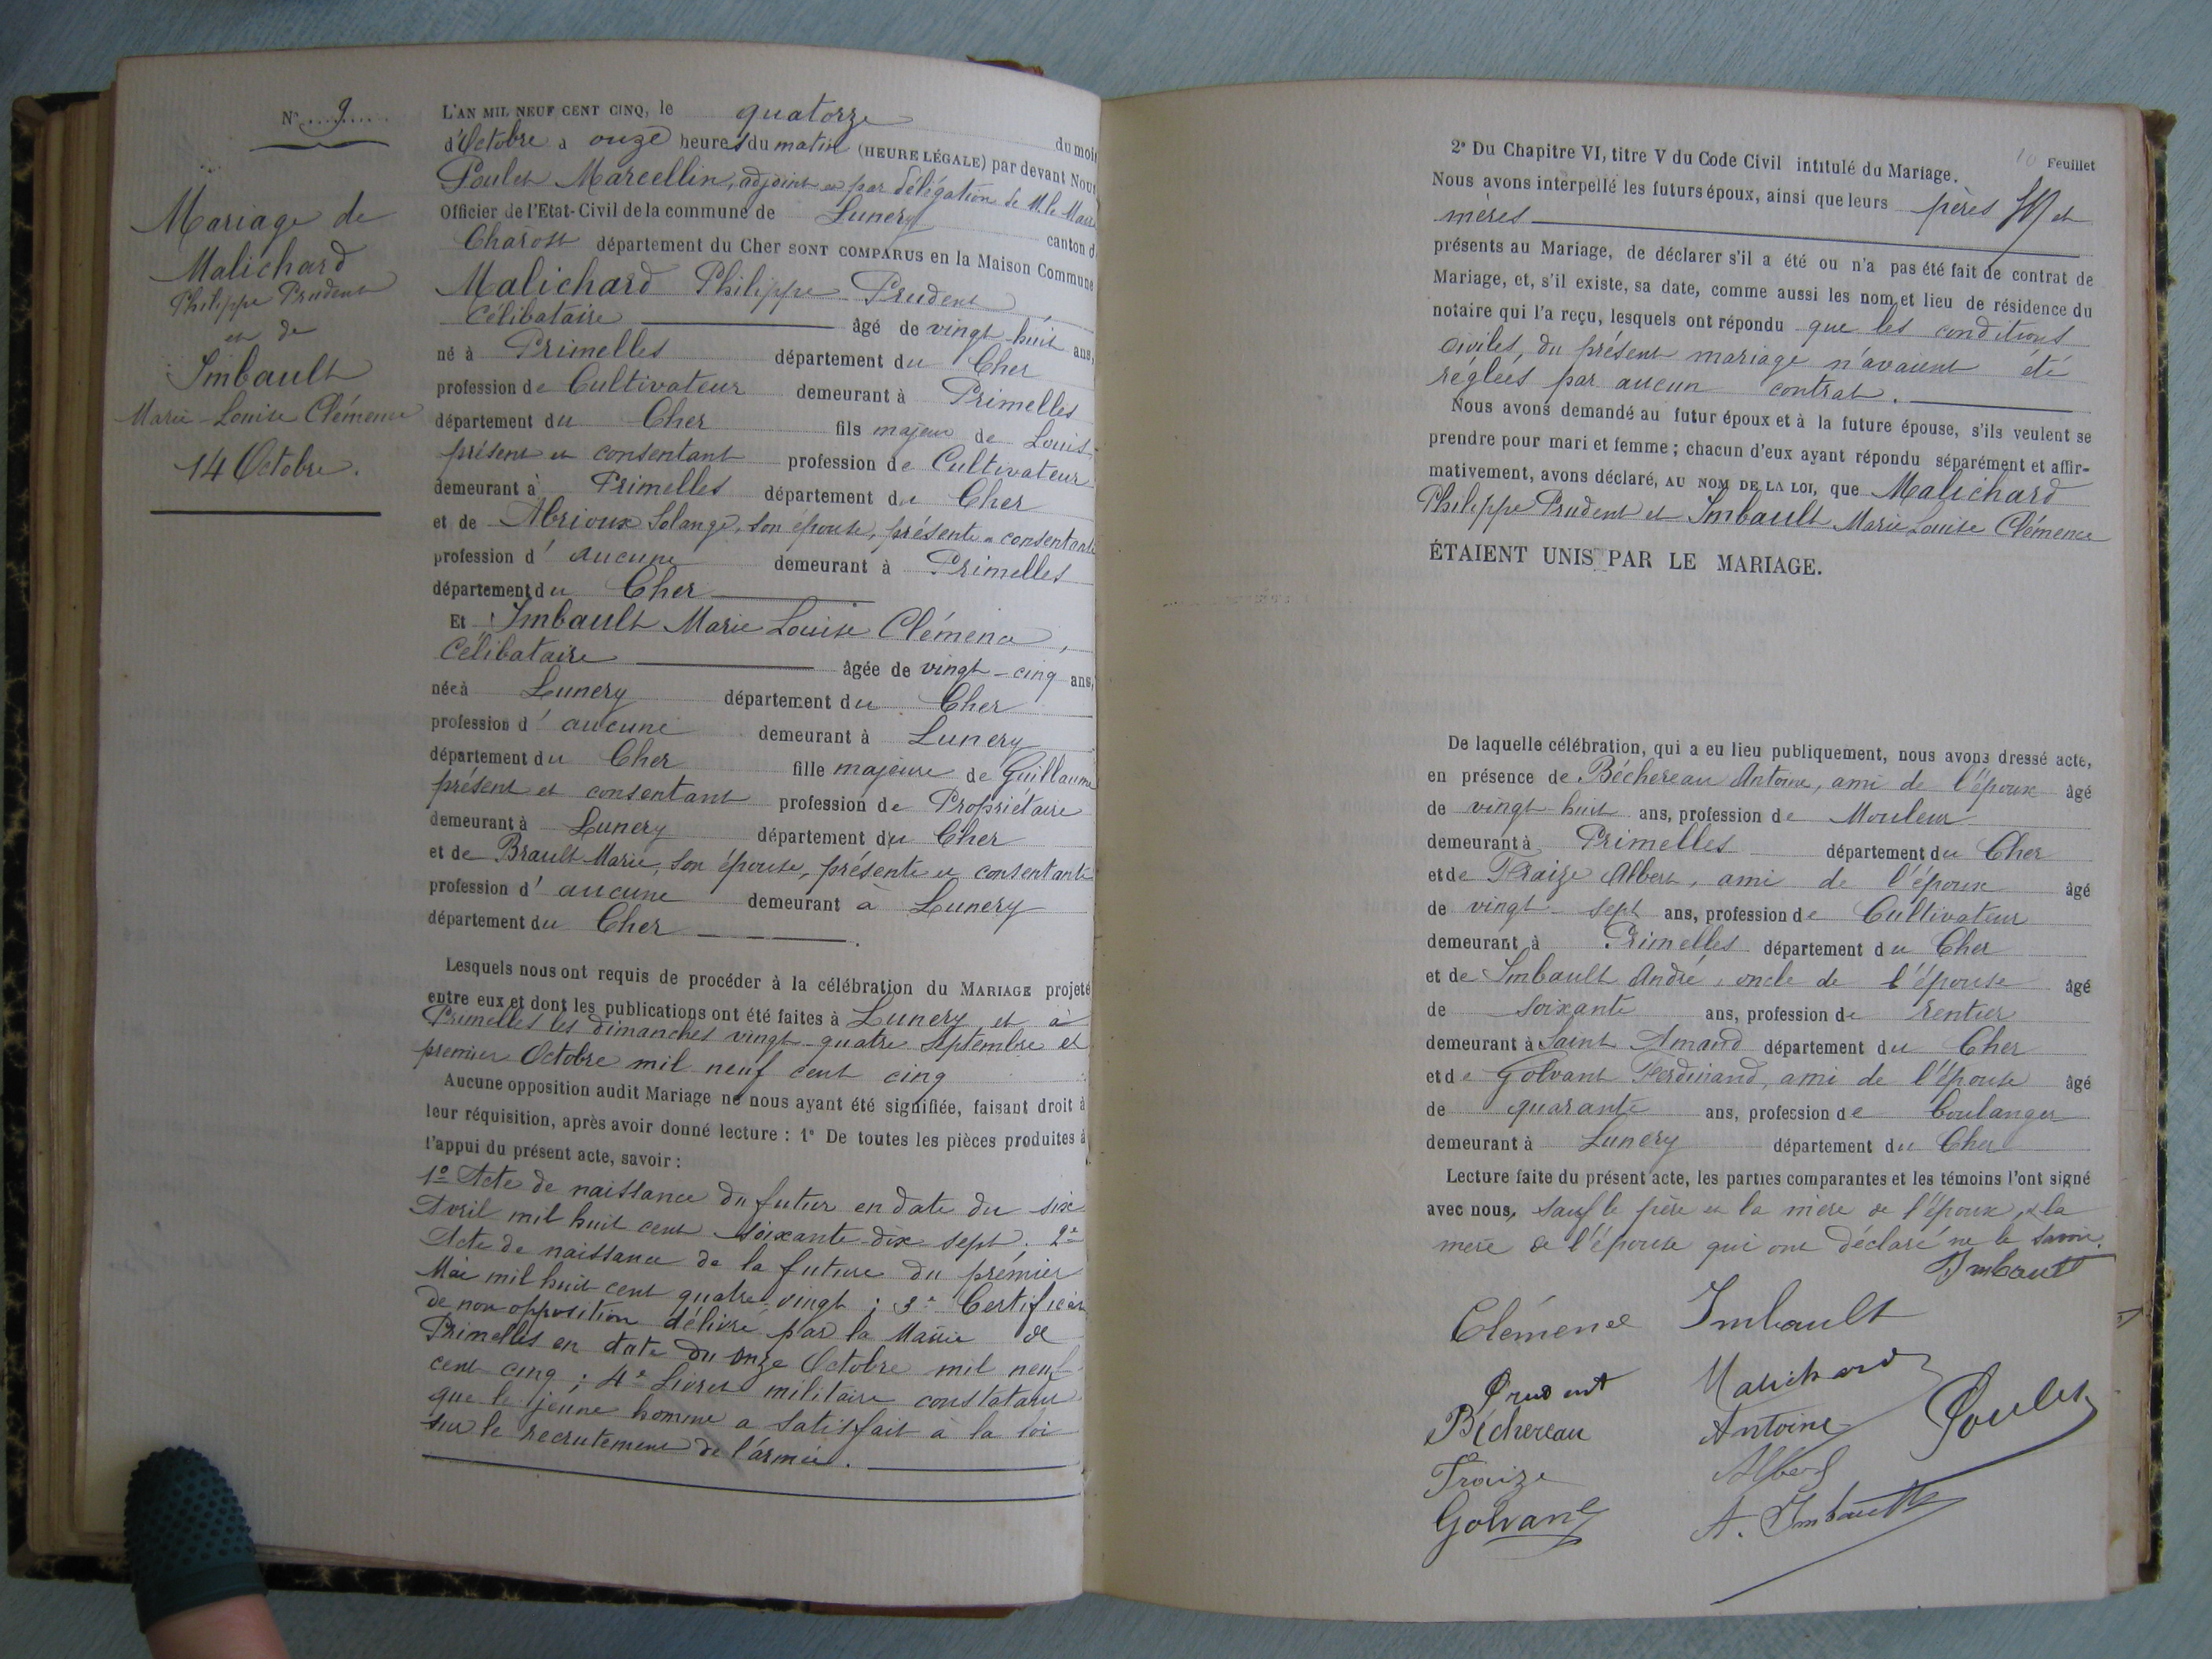 N° 9
Mariage de
Malichard
Philippe Prudent
et de
Imbault
Marie-Louise Clémence
14 Octobre.
L'AN MIL NEUF CENT CINQ, le quatorze du mois
d'Octobre à onze heures du matin (HEURE LÉGALE) par devant Nous
Poulet Marcellin, adjoint et par délégation de M. le Maire
Officier de l'Etat-Civil de la commune de Lunery canton d
Charost département du Cher SONT COMPARUS en la Maison Commune
Malichard Philippe Prudent,
Célibataire âgé de vingt-huit ans,
né à Primelles département du Cher
profession de Cultivateur demeurant à Primelles
département du Cher fils majeur de Louis
présent et consentant profession de Cultivateur
demeurant à Primelles département du Cher
et de Abrioux Solange, son épouse, présente et consentante
profession d' aucune demeurant à Primelles
département du Cher
Et Imbault Marie Louise Clémence,
Célibataire âgée de vingt-cinq ans,
née à Lunery département du Cher
profession d' aucune demeurant à Lunery
département du Cher fille majeure de Guillaume
présent et consentant profession de Propriétaire
demeurant à Lunery département du Cher
et de Brault Marie, son épouse, présente et consentante
profession d' aucune demeurant à Lunery
département du Cher
Lesquels nous ont requis de procéder à la célébration du MARIAGE projeté
entre eux et dont les publications ont été faites à Lunery et à
Primelles les dimanches vingt-quatre Septembre et
premier Octobre mil neuf cent cinq
Aucune opposition audit Mariage ne nous ayant été signifiée, faisant droit à
leur réquisition, après avoir donné lecture : 1° De toutes les pièces produites à
l'appui du présent acte, savoir :
1° Acte de naissance du futur en date du six
Avril mil huit cent soixante-dix-sept. 2°
Acte de naissance de la future du premier
Mai mil huit cent quatre-vingt ; 3° Certificat
de non opposition délivré par la Mairie de
Primelles en date du onze Octobre mil neuf
cent cinq ; 4° Livret militaire constatant
que le jeune homme a satisfait à la loi
sur le recrutement de l'armée.
10 Feuillet
2° Du Chapitre VI, titre V du Code Civil intitulé du Mariage.
Nous avons interpellé les futurs époux, ainsi que leurs pères et
mères
présents au Mariage, de déclarer s'il a été ou n'a pas été fait de contrat de
Mariage, et, s'il existe, sa date, comme aussi les nom et lieu de résidence du
notaire qui l'a reçu, lesquels ont répondu que les conditions
civiles, du présent mariage n'avaient été
réglées par aucun contrat.
Nous avons demandé au futur époux et à la future épouse, s'ils veulent se
prendre pour mari et femme ; chacun d'eux ayant répondu séparément et affir-
mativement, avons déclaré, AU NOM DE LA LOI, que Malichard
Philippe Prudent et Imbault Marie Louise Clémence
ÉTAIENT UNIS PAR LE MARIAGE.
De laquelle célébration, qui a eu lieu publiquement, nous avons dressé acte,
en présence de Béchereau Antoine, ami de l'époux âgé
de vingt-huit ans, profession de Mouleur
demeurant à Primelles département du Cher
et de Fraize Albert, ami de l'époux âgé
de vingt-sept ans, profession de Cultivateur
demeurant à Primelles département du Cher
et de Imbault André, oncle de l'épouse âgé
de soixante ans, profession de rentier
demeurant à Saint Amand département du Cher
et de Golvant Ferdinand, ami de l'épouse âgé
de quarante ans, profession de boulanger
demeurant à Lunery département du Cher
Lecture faite du présent acte, les parties comparantes et les témoins l'ont signé
avec nous, sauf le père et la mère de l'époux, & la
mère de l'épouse qui ont déclaré ne le savoir.
Imbault
Clémence Imbault
Prudent Malichard
Béchereau Antoine Poulet
Fraize Albert
Golvant A. Imbault